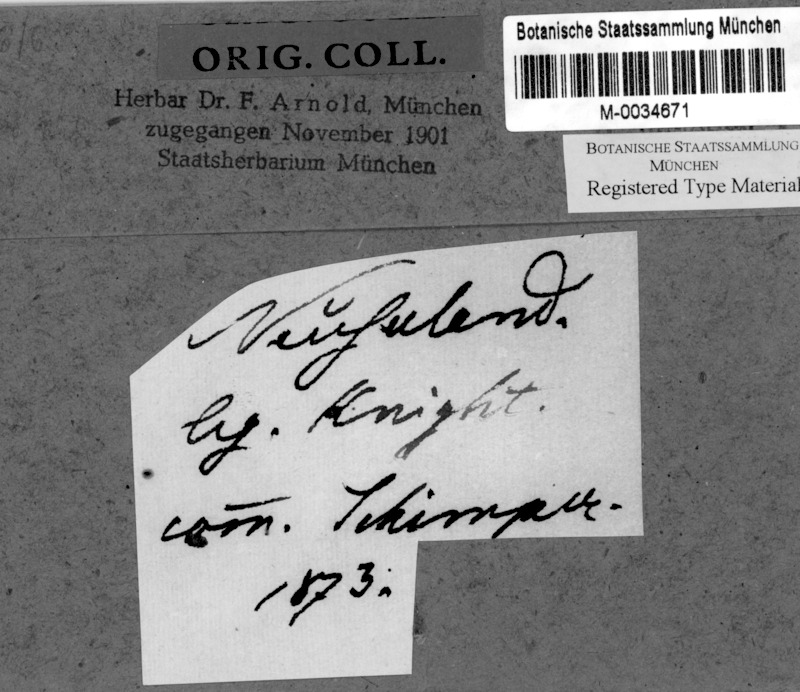 ORIG. COLL.
Herbar Dr. F. Arnold, München
zugegangen November 1901
Staatsherbarium München
Botanische Staatssammlung München
M-0034671
BOTANISCHE STAATSSAMMLUNG
MÜNCHEN
Registered Type Material
Neuseeland.
lg. Knight.
com̄. Schimper.
1873.